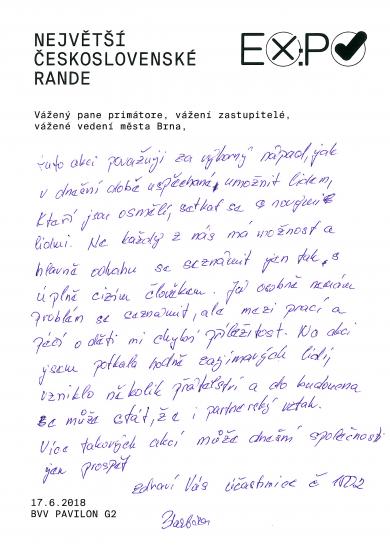 NEJVĚTŠÍ
ČESKOSLOVENSKÉ
RANDE
EX:PO
Vážený pane primátore, vážení zastupitelé,
vážené vedení města Brna,
tuto akci považuji za výborný nápad, jak
v dnešní době uspěchané, umožnit lidem,
kteří jsou osmělí, setkat se s novými
lidmi. Ne každý z nás má možnost a
hlavně odvahu se seznámit jen tak, s
úplně cizím člověkem. Já osobně nemám
problém se seznámit, ale mezi prací a
péčí o děti mi chybí příležitost. Na akci
jsem potkala hodně zajímavých lidí,
vzniklo několik přátelství a do budoucna
se může stát, že i partnerský vztah.
Více takových akcí může dnešní společnosti
jen prospět
zdraví Vás účastnice č 1022
17.6.2018
BVV PAVILON G2
Barbora